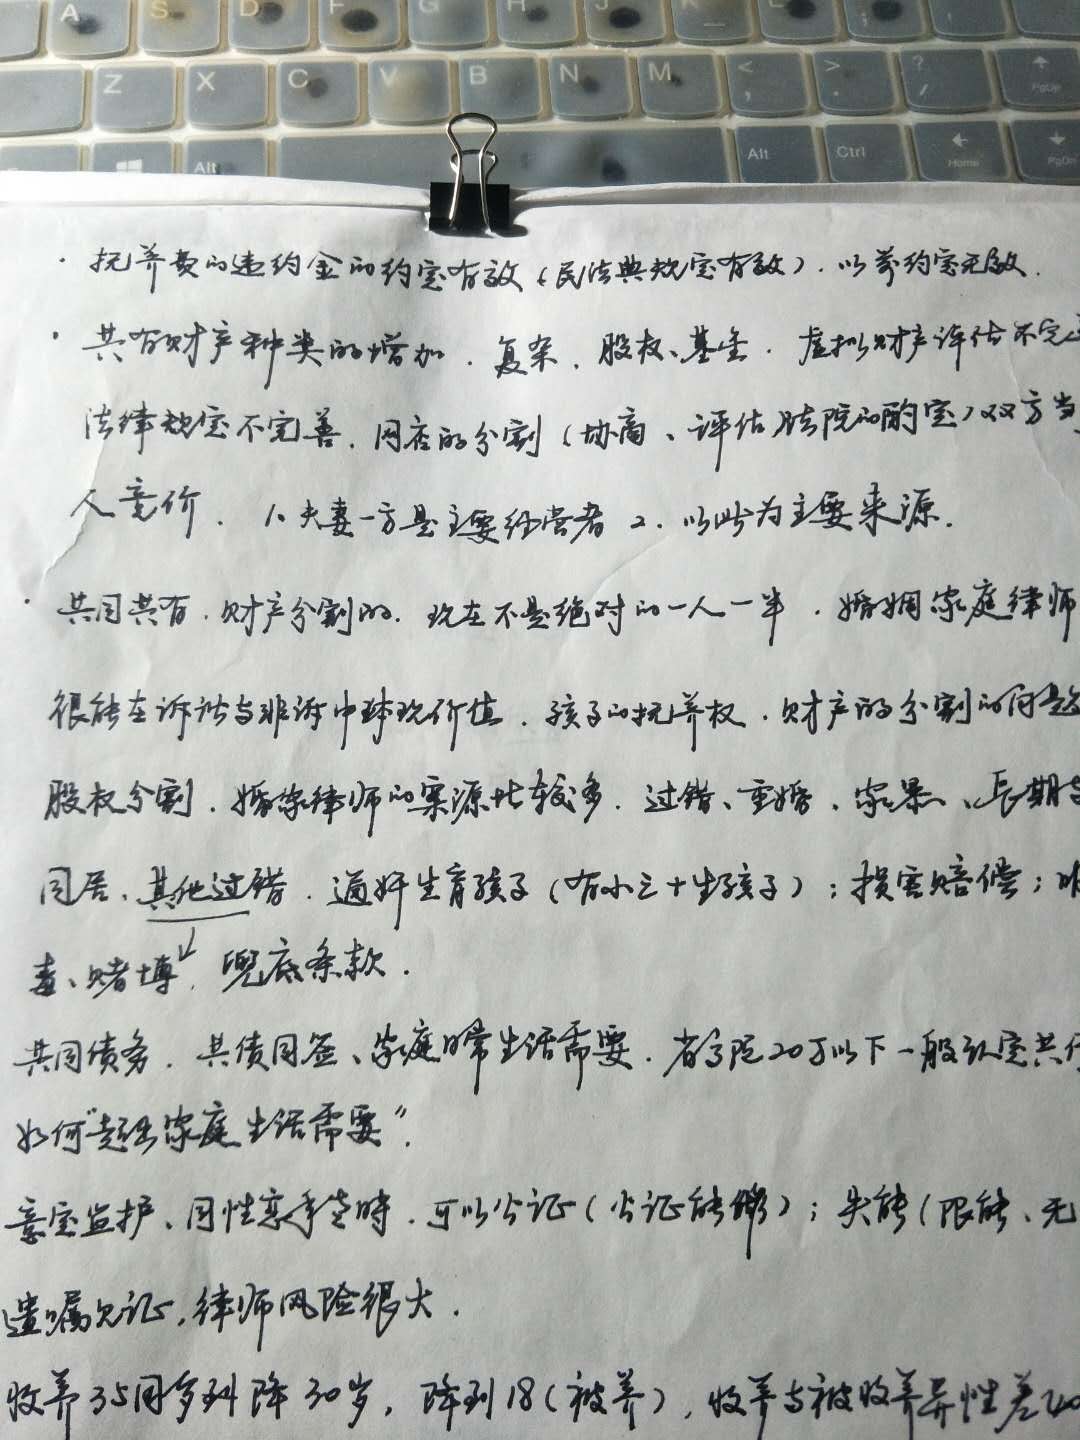 A S D F G H J K L
Z X C V B N M < , > . ? / ↑ PgUp
Alt Alt Ctrl ← Home ↓ PgDn
· 抚养费的违约金的约定有效(民法典规定有效).以前约定无效.
· 共有财产种类的增加.复杂.股权、基金.虚拟财产评估不完
法律规定不完善.网店的分割(协商、评估、法院的酌定)双方当
人竞价. 1、夫妻一方是主要经营者 2、以此为主要来源.
· 共同共有.财产分割的.现在不是绝对的一人一半.婚姻家庭律师
很能在诉讼与非诉中体现价值.孩子的抚养权.财产的分割的问题
股权分割.婚家律师的案源比较多.过错、重婚、家暴、长期与
同居、其他过错.通奸生育孩子(有小三+生孩子);损害赔偿;
毒、赌博、兜底条款.
共同债务.共债同签、家庭日常生活需要.省高院20万以下一般认定共
如何"超出家庭生活需要".
意定监护、同性恋手术时.可以公证(公证能够);失能(限能、无
遗嘱见证,律师风险很大.
收养35周岁到降30岁,降到18(被养),收养与被收养异性差40